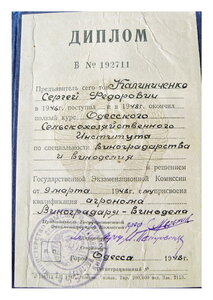 ДИПЛОМ
В № 192711
Предъявитель сего тов. Калиниченко
Сергей Федорович
в 1946 г. поступил и в 1948 г. окончил
полный курс Одесского
Сельскохозяйственного
Института
по специальности виноградарства
и виноделия
решением
Государственной Экзаменационной Комиссии
от 9 марта 1948 г. присвоена
квалификация агронома
Виноградаря-Винодела
Город Одесса 1948 г.